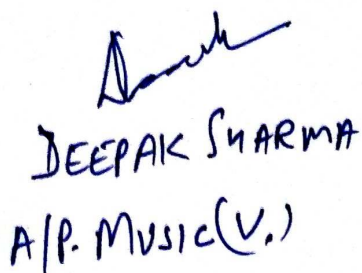 DEEPAK SHARMA
A/P. MUSIC(V.)